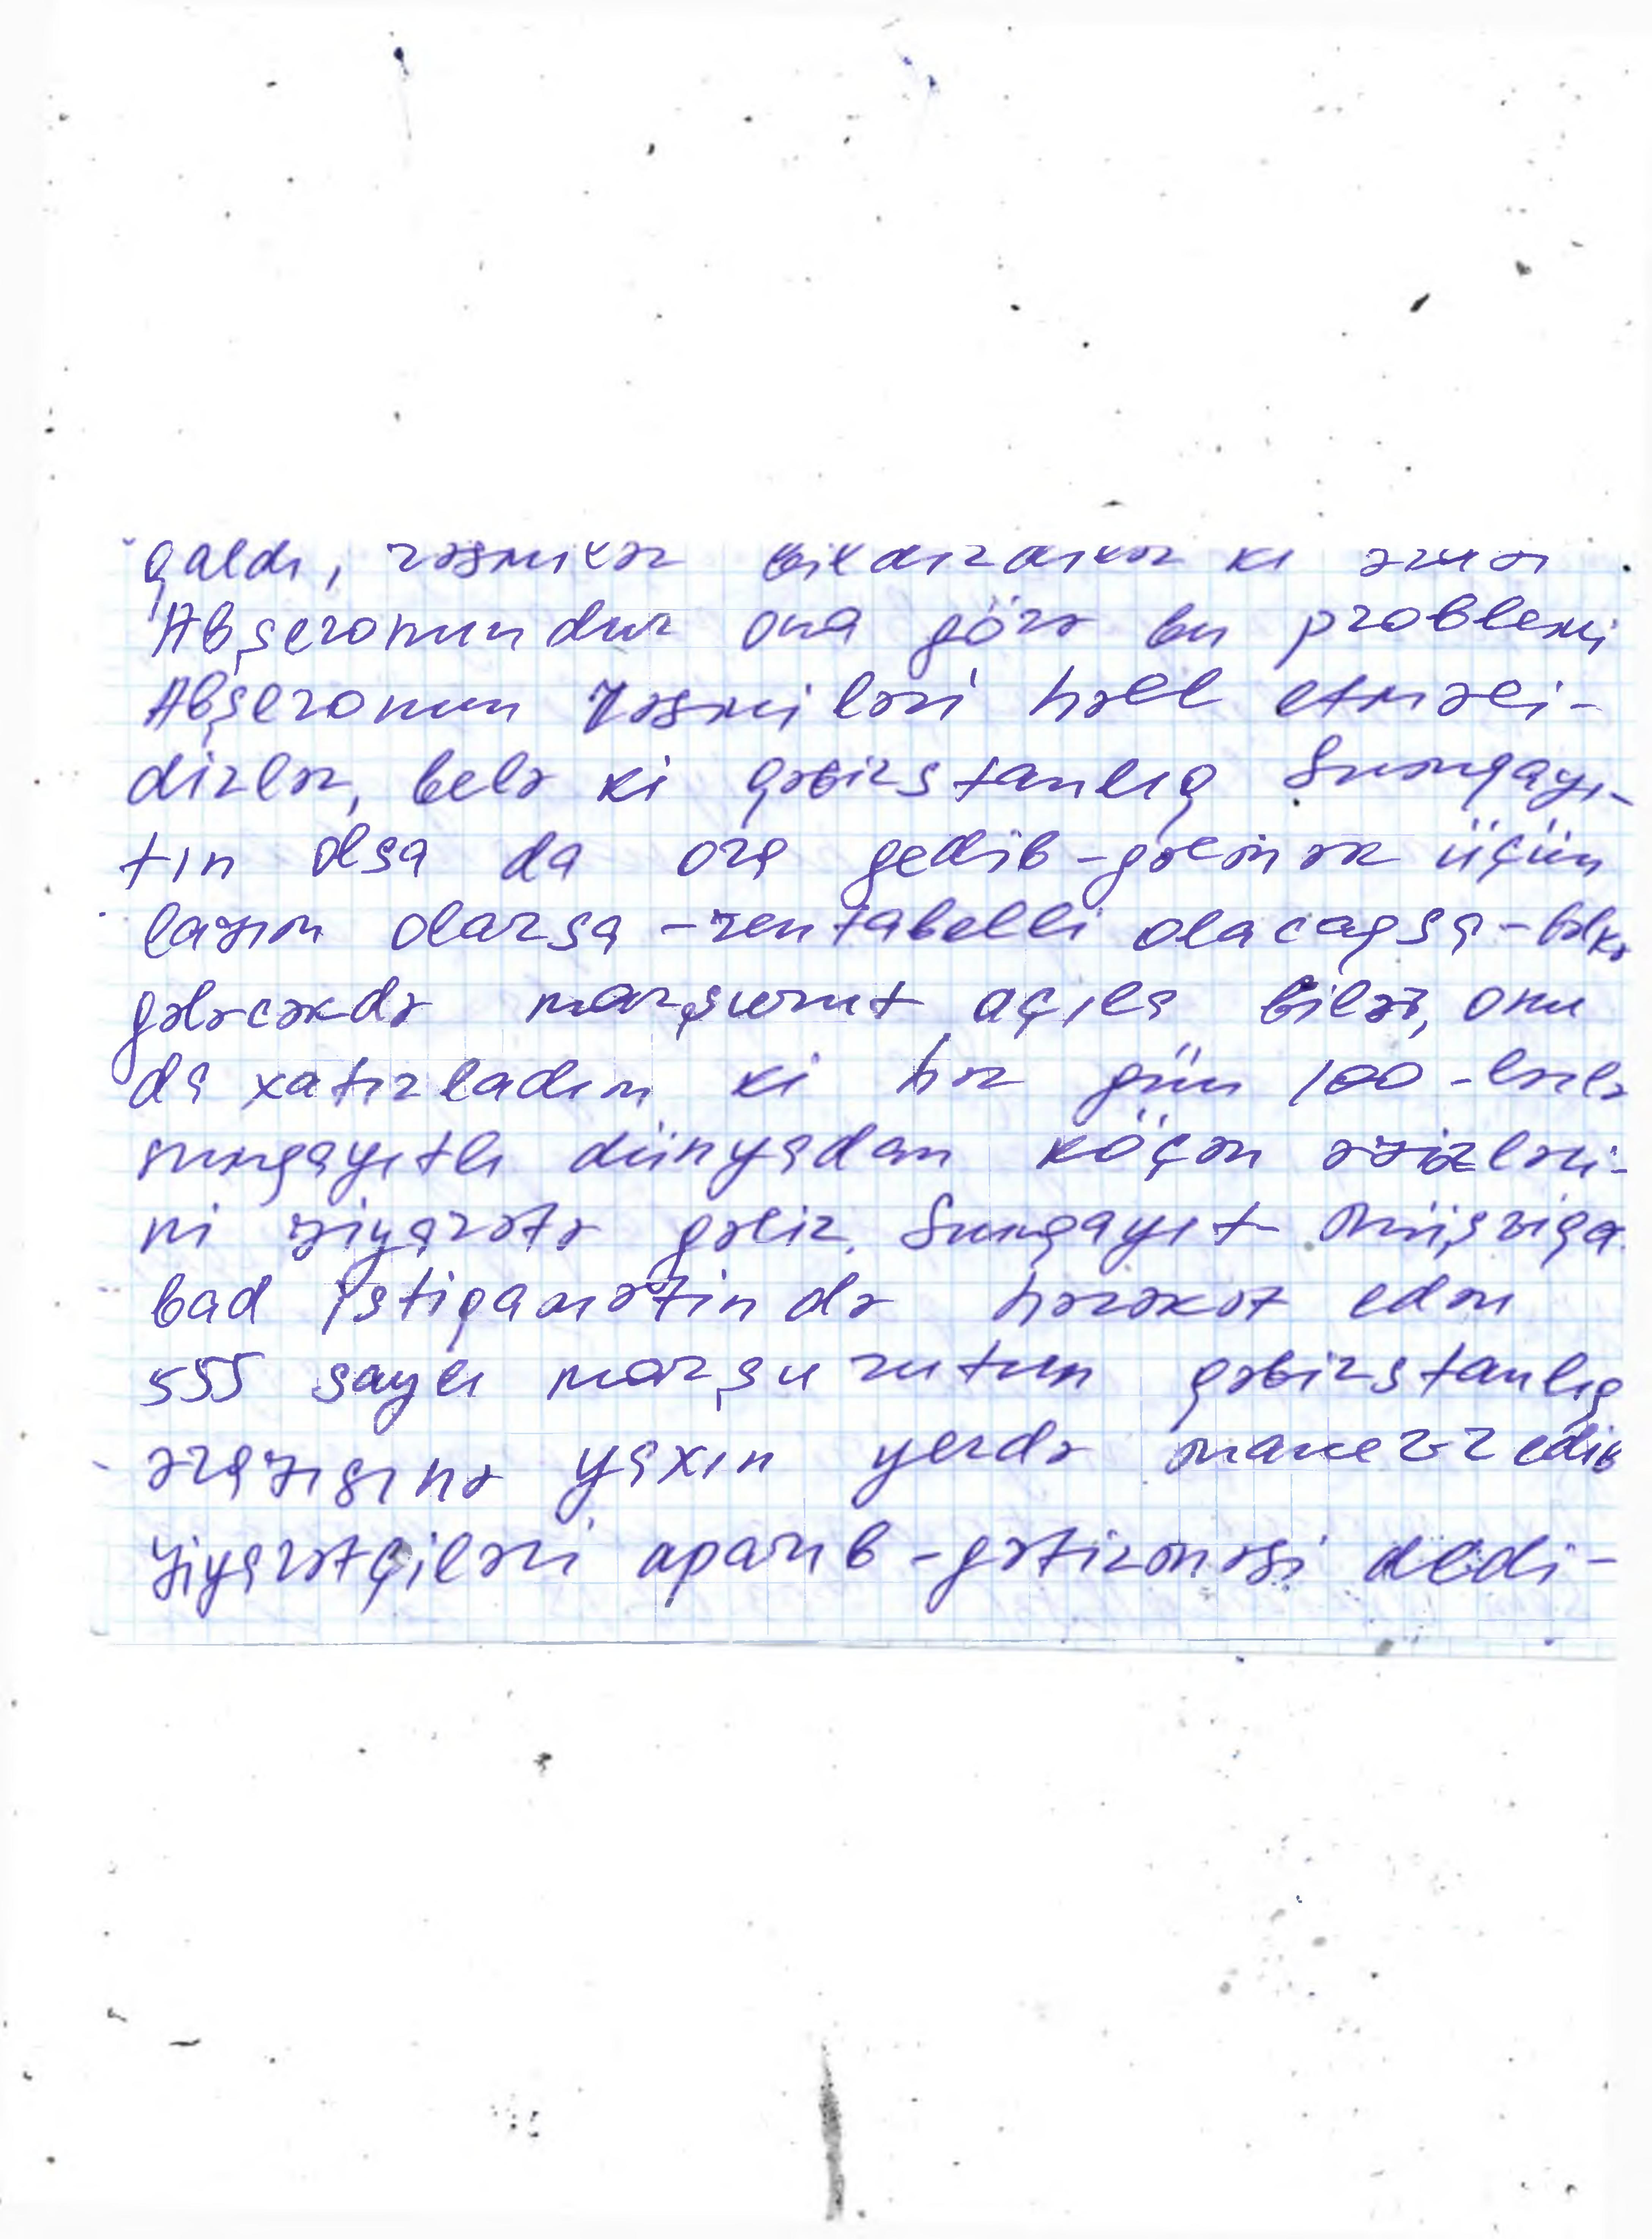 qaldı, rəsmilər bildirdilər ki ərazi
Abşeronundur ona görə bu problemi
Abşeronun rəsmiləri həll etməli-
dirlər, belə ki qəbirstanlıq Sumqayı-
tın olsa da ora gedib-gəlmək üçün
lazım olarsa - rentabelli olacaqsa - bəlkə
gələcəkdə marşurut açıla bilər, onu
da xatırladım ki hər gün 100-lərlə
sumqayıtlı dünyadan köçən əzizləri-
ni ziyarətə gəlir. Sumqayıt Müşviqa
bad istiqamətində hərəkət edən
555 saylı marşurutun qəbirstanlıq
ərazısınə yaxın yerdə edib
ziyarətçiləri aparıb-gətirməsi dedi-